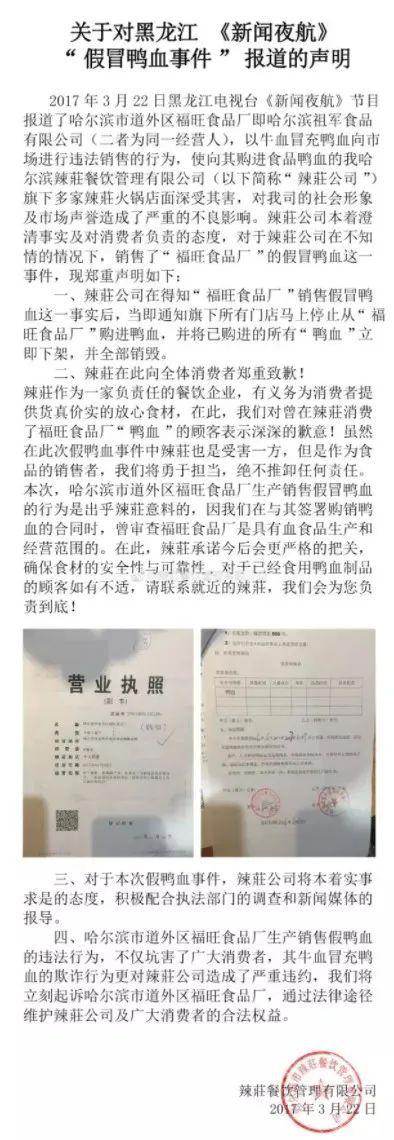 关于对黑龙江 《新闻夜航》
“ 假冒鸭血事件 ” 报道的声明
2017 年 3 月 22 日黑龙江电视台《新闻夜航》节目
报道了哈尔滨市道外区福旺食品厂即哈尔滨祖军食品
有限公司（二者为同一经营人），以牛血冒充鸭血向市
场进行违法销售的行为，使向其购进食品鸭血的我哈
尔滨辣莊餐饮管理有限公司（以下简称“ 辣莊公司 ”）
旗下多家辣莊火锅店面深受其害，对我司的社会形象
及市场声誉造成了严重的不良影响。辣莊公司本着澄
清事实及对消费者负责的态度，对于辣莊公司在不知
情的情况下，销售了“ 福旺食品厂 ”的假冒鸭血这一
事件，现郑重声明如下：
一、辣莊公司在得知“ 福旺食品厂 ”销售假冒鸭
血这一事实后，当即通知旗下所有门店马上停止从“ 福
旺食品厂 ”购进鸭血，并将已购进的所有“ 鸭血 ”立
即下架，并全部销毁。
二、辣莊在此向全体消费者郑重致歉！
辣莊作为一家负责任的餐饮企业，有义务为消费者提
供货真价实的放心食材，在此，我们对曾在辣莊消费
了福旺食品厂“ 鸭血 ”的顾客表示深深的歉意！虽然
在此次假鸭血事件中辣莊也是受害一方，但是作为食
品的销售者，我们将勇于担当，绝不推卸任何责任。
本次，哈尔滨市道外区福旺食品厂生产销售假冒鸭血
的行为是出乎辣莊意料的，因我们在与其签署购销鸭
血的合同时，曾审查福旺食品厂是具有血食品生产和
经营范围的。在此，辣莊承诺今后会更严格的把关，
确保食材的安全性与可靠性，对于已经食用鸭血制品
的顾客如有不适，请联系就近的辣莊，我们会为您负
责到底！
营业执照
三、对于本次假鸭血事件，辣莊公司将本着实事
求是的态度，积极配合执法部门的调查和新闻媒体的
报导。
四、哈尔滨市道外区福旺食品厂生产销售假鸭血
的违法行为，不仅坑害了广大消费者，其牛血冒充鸭
血的欺诈行为更对辣莊公司造成了严重违约，我们将
立刻起诉哈尔滨市道外区福旺食品厂，通过法律途径
维护辣莊公司及广大消费者的合法权益。
辣莊餐饮管理有限公司
2017 年 3 月 22 日